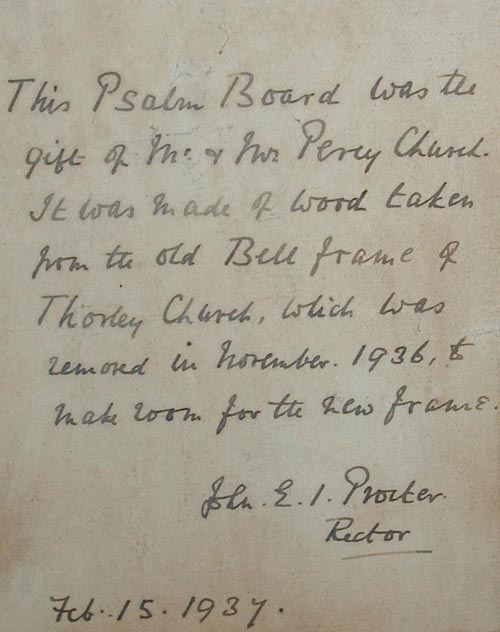 This Psalm Board was the
gift of Mr. & Mrs Percy Church.
It was made of wood taken
from the old Bell frame of
Thorley Church, which was
removed in November. 1936, to
make room for the new frame.
John. E. I. Procter.
Rector
Feb. 15. 1937.